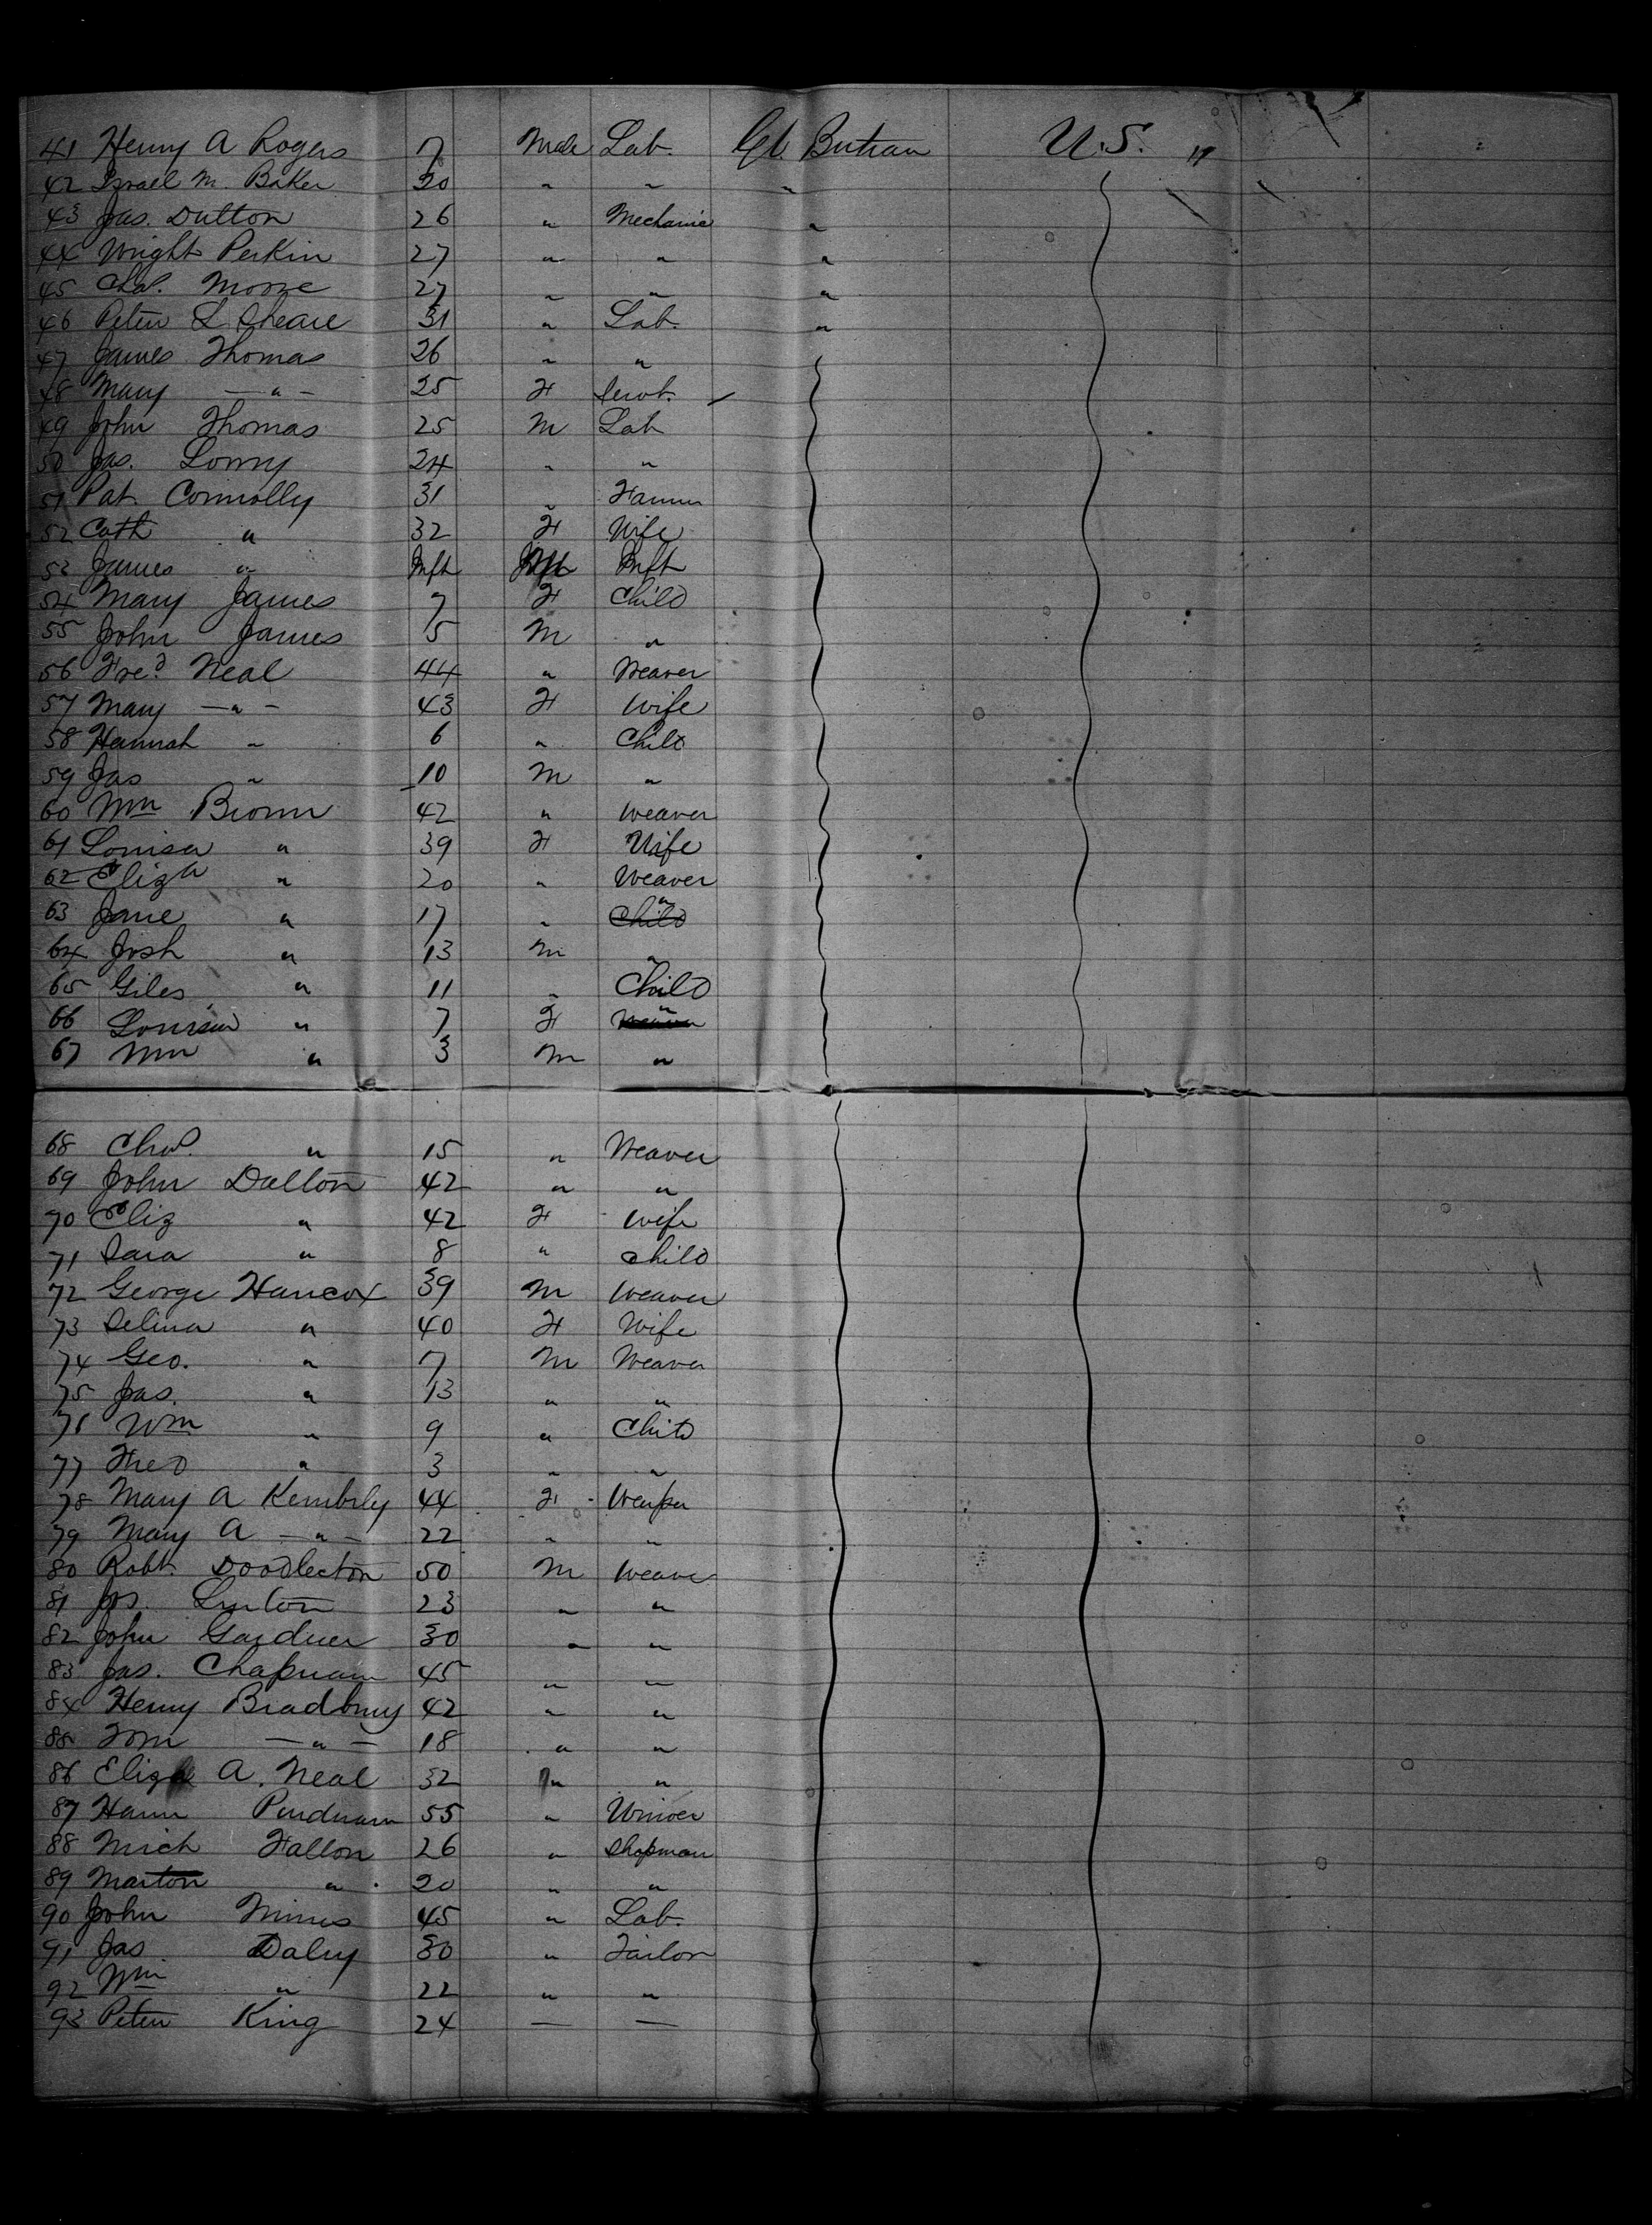 41 Henry A Rogers 7 Male Lab. Gt. Britain U.S. "
42 Israel M. Baker 20 " " "
43 Jas. Dutton 26 " Mechanic "
44 Wright Perkin 27 " " "
45 Chas. Morse 27 " " "
46 Peter L Sheare 31 " Lab. "
47 James Thomas 26 " "
48 Mary — " — 25 F Servt.
49 John Thomas 25 M Lab
50 Jas. Lonny 24 " "
51 Pat Connolly 31 " Farmer
52 Cath " 32 F Wife
53 James " Inft M Inft
54 Mary James 7 F Child
55 John James 5 M "
56 Fred Neal 44 " Weaver
57 Mary — " — 43 F Wife
58 Hannah " 6 " Child
59 Jas " 10 M "
60 Wm Brown 42 " Weaver
61 Louisa " 39 F Wife
62 Eliza " 20 " Weaver
63 Jane " 17 " Child "
64 Josh " 13 M "
65 Giles " 11 " Child
66 Louisa " 7 F "
67 Wm " 3 M "
68 Chas. " 15 " Weaver
69 John Dalton 42 " "
70 Eliz " 42 F Wife
71 Sara " 8 " Child
72 George Hancox 39 M Weaver
73 Selina " 40 F Wife
74 Geo. " 7 M Weaver
75 Jas. " 13 " "
76 Wm " 9 " Child
77 Fred " 3 " "
78 Mary A Kemberly 44 F Weaver
79 Mary A — " — 22 " "
80 Robt. Doodlecton 50 M Weaver
81 Jos. Linton 23 " "
82 John Gardner 30 " "
83 Jas. Chapman 45 " "
84 Henry Bradbury 42 " "
85 Tom — " — 18 " "
86 Eliza A. Neal 32 " "
87 55 "
88 Mich Fallon 26 " Shopman
89 Marton " 20 " "
90 John 45 " Lab.
91 Jas Daly 30 " Tailor
92 Wm " 22 " "
93 Peter King 24 — —